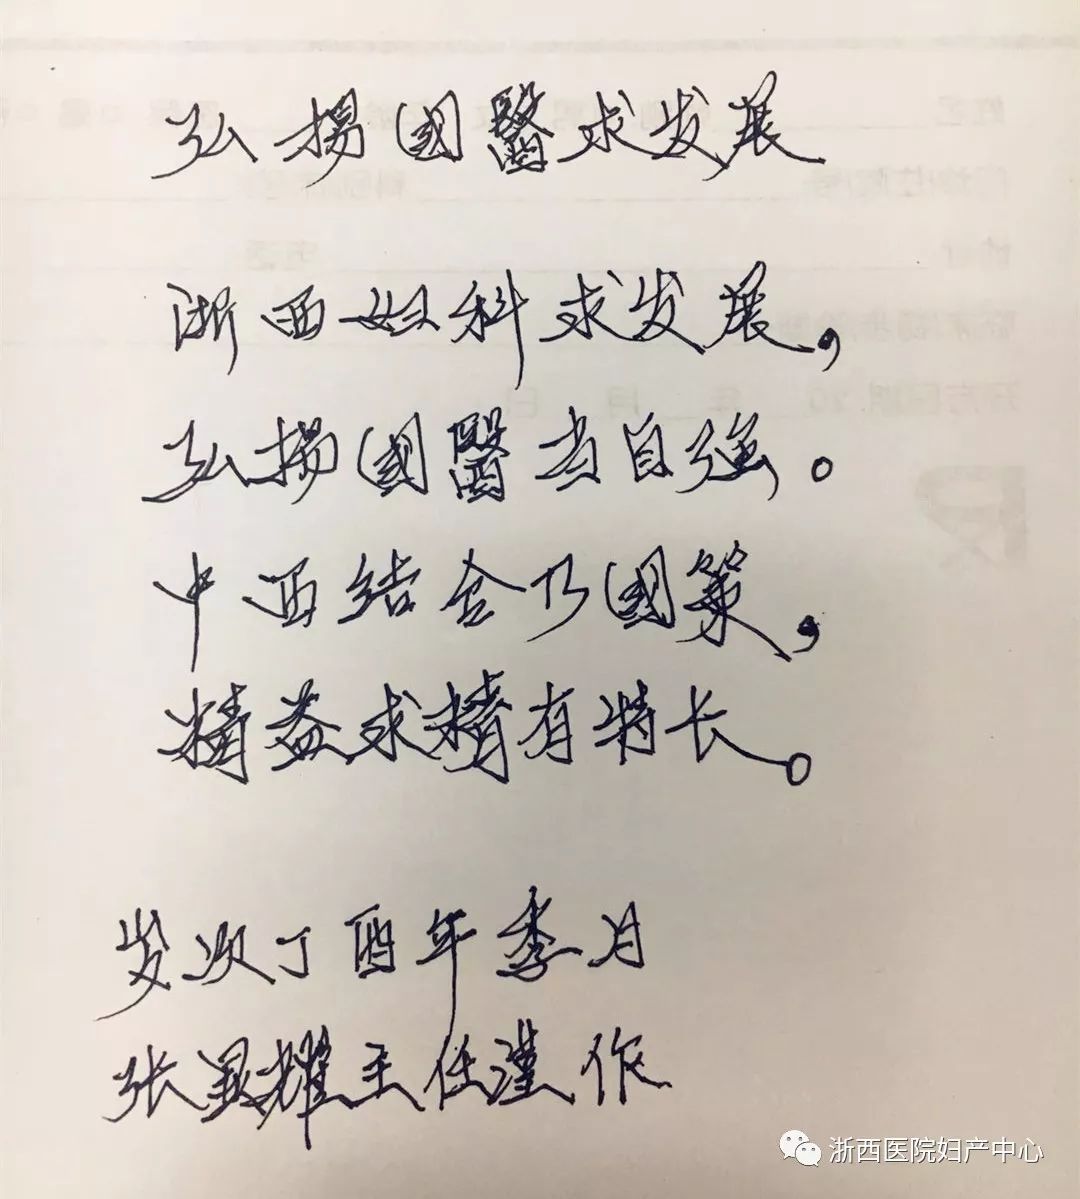 弘揚國醫求发展
浙西妇科求发展，
弘揚國醫当自強。
中西结合乃國策，
精益求精有特长。
岁次丁酉年季月
张显耀主任谨作
浙西医院妇产中心